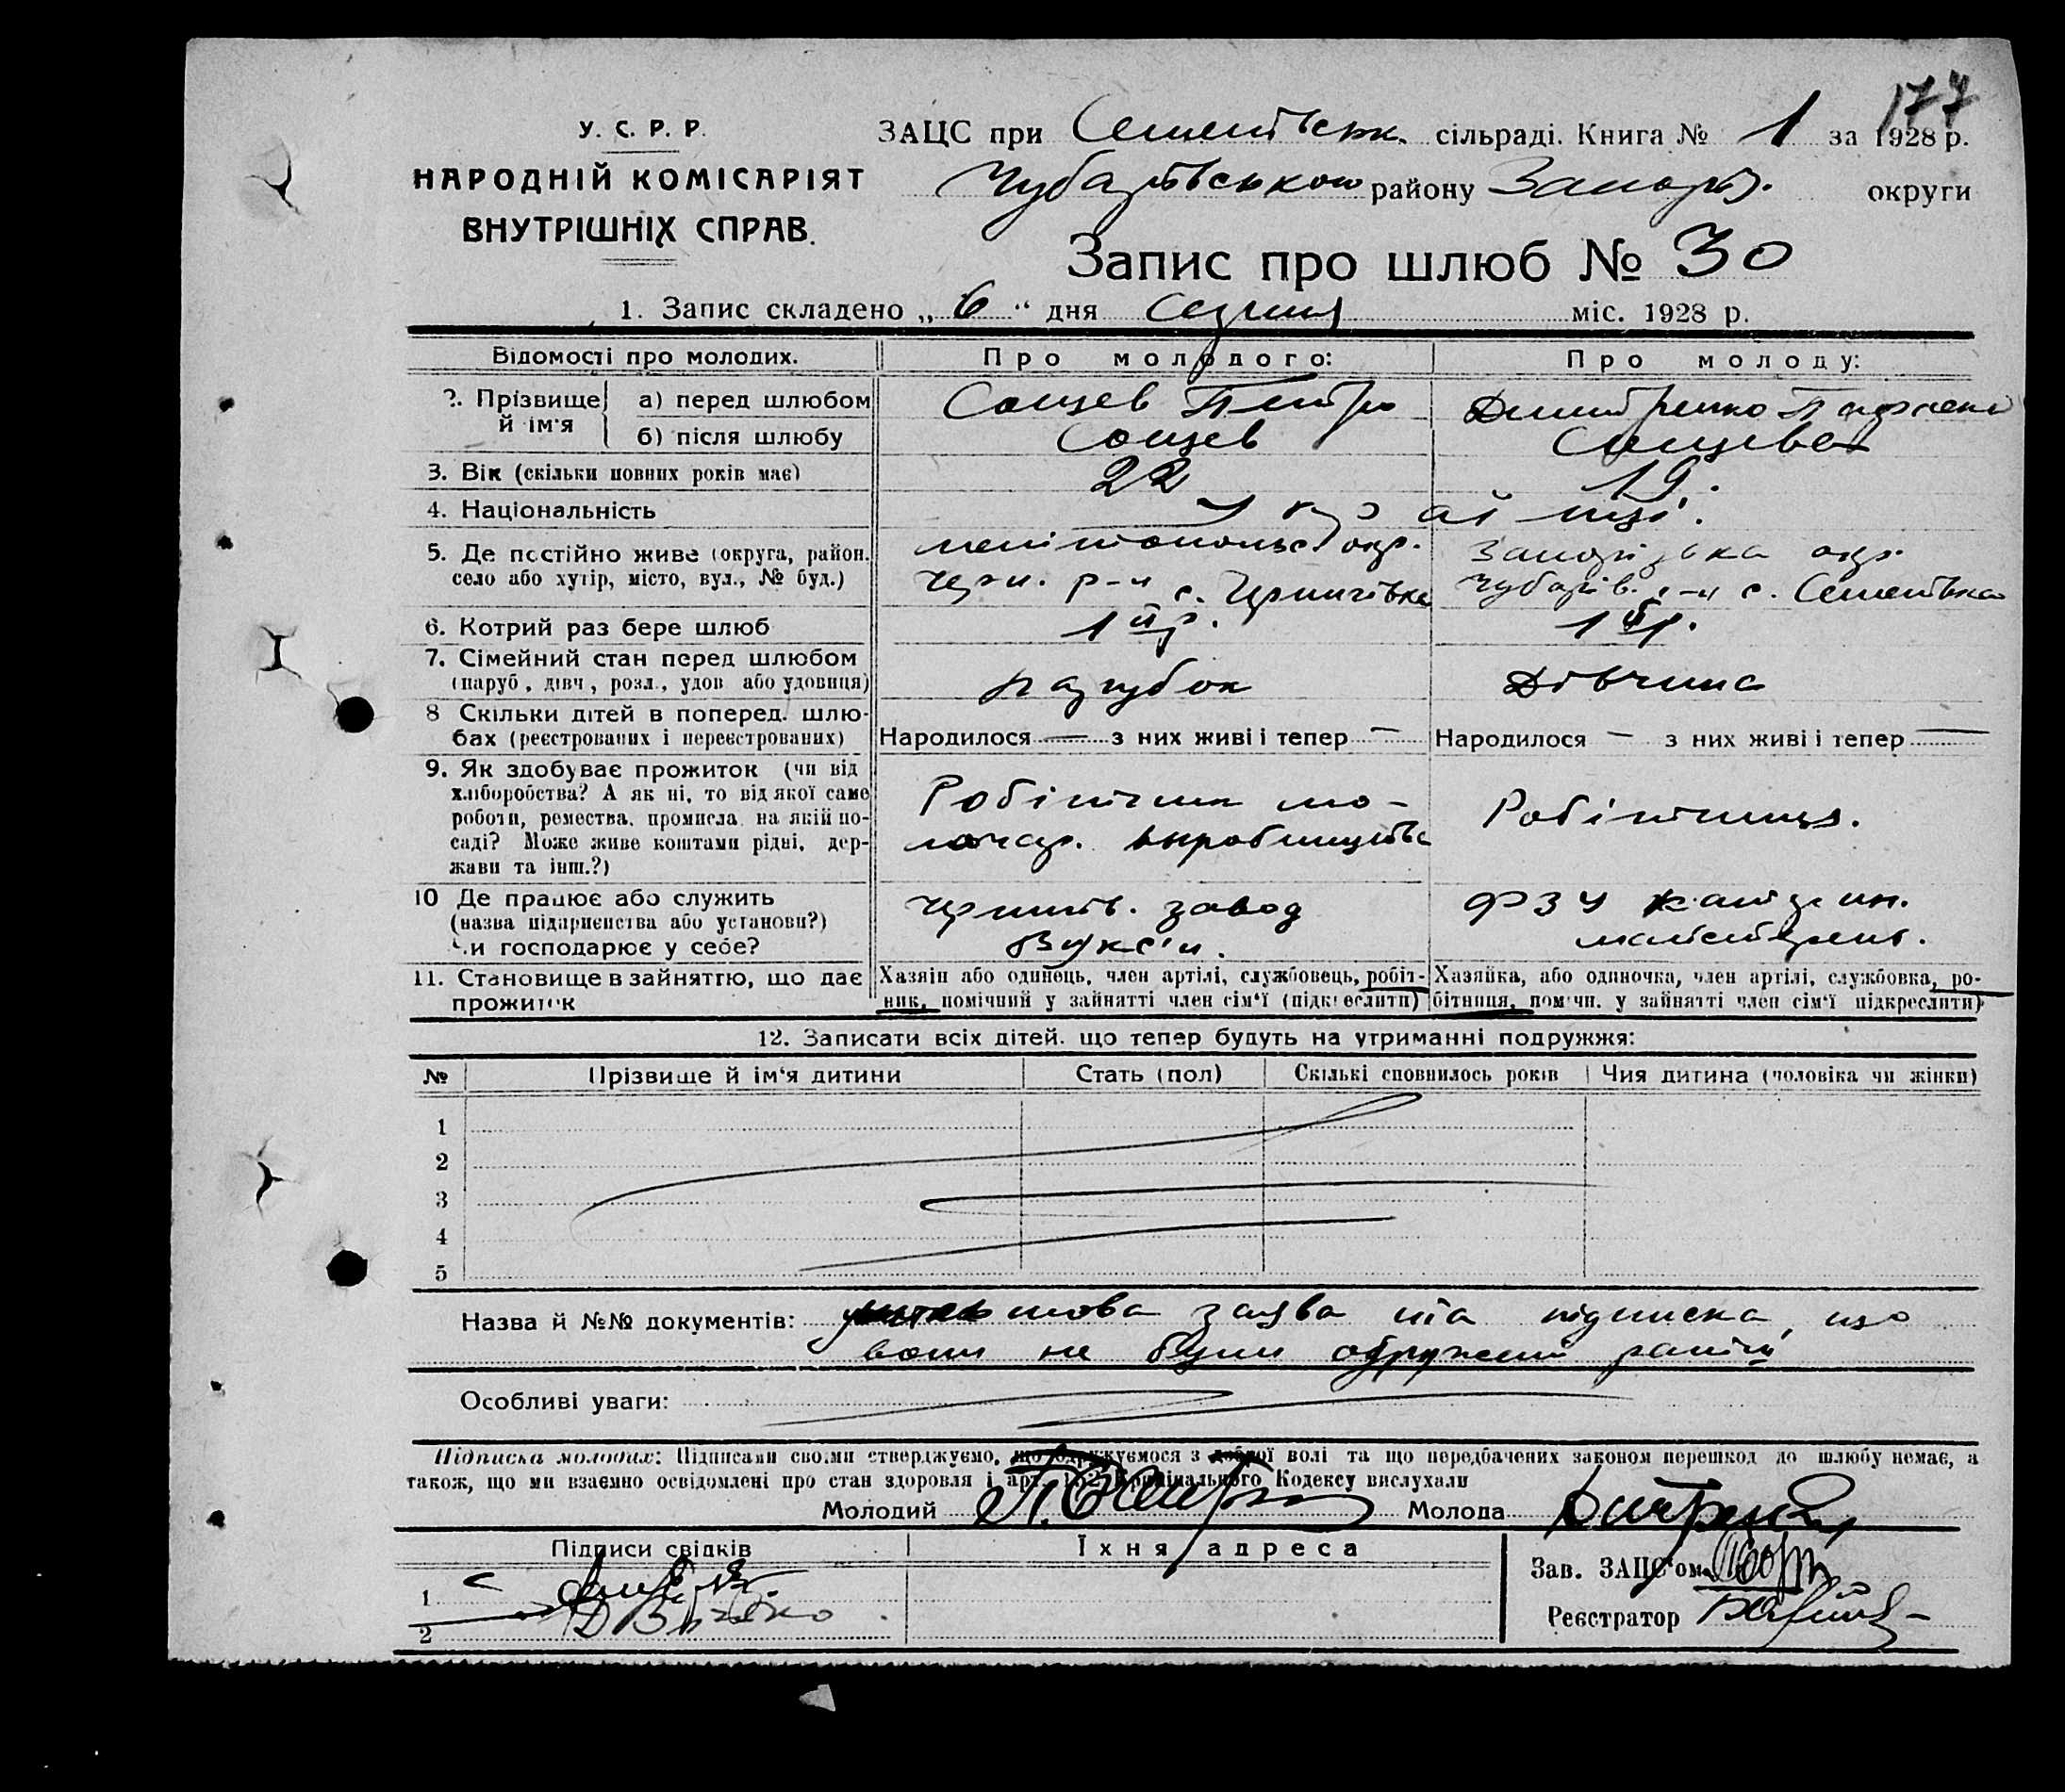 177
У. С. Р. Р.
НАРОДНІЙ КОМІСАРІЯТ
ВНУТРІШНІХ СПРАВ.
ЗАЦС при Семенівськ. сільраді. Книга № 1 за 1928 р.
Чубарівського району Запоріз. округи
Запис про шлюб № 30
1. Запис складено „ 6 “ дня серпня міс. 1928 р.
Відомості про молодих. Про молодого: Про молоду:
2. Прізвище й ім'я а) перед шлюбом Сонцев Петро Дмитренко
б) після шлюбу Сонцев Сонцева
3. Вік (скільки повних років має) 22 19.
4. Національність українці.
5. Де постійно живе (округа, район. Мелітопольс окр. Запорізька окр.
село або хутір, місто, вул., № буд.) Черн. р-н с. Чернигівка Чубарів. р-н с. Семенівка
6. Котрий раз бере шлюб 1й р. 1й р.
7. Сімейний стан перед шлюбом
(паруб., дівч., розл., удов або удовиця) парубок Дівчина
8 Скільки дітей в поперед. шлю-
бах (реєстрованих і нереєстрованих) Народилося — з них живі і тепер — Народилося — з них живі і тепер —
9. Як здобуває прожиток (чи від
хліборобства? А як ні, то від якої саме
роботи, ремества, промисла на якій по-
саді? Може живе коштами рідні, дер-
жави та інш.?)
Робітник мо-
лочар. виробництва
Робітниця.
10 Де працює або служить
(назва підприємства або установи?)
Чи господарює у себе?
завод
ФЗУ
майстерень.
11. Становище в зайняттю, що дає
прожиток
Хазяїн або одинець, член артілі, службовець, робіт-
ник, помічний у зайнятті член сім'ї (підкреслити)
Хазяйка, або одиночка, член артілі, службовка, ро-
бітниця, помічн. у зайнятті член сім'ї підкреслити)
12. Записати всіх дітей. що тепер будуть на утриманні подружжя:
№ Прізвище й ім'я дитини Стать (пол) Скількі сповнилось років Чия дитина (чоловіка чи жінки)
1
2
3
4
5
Назва й №№ документів: заява та підписка, що
вони не були одружені раніш
Особливі уваги:
Підписка молодих: Підписами своїми стверджуємо, що одружуємося з доброї волі та що передбачених законом перешкод до шлюбу немає, а
також, що ми взаємно освідомлені про стан здоровля і арт. Крмінального Кодексу вислухали
Молодий Молода
Підписи свідків Їхня адреса
Зав. ЗАЦС'ом
1
2
Реєстратор